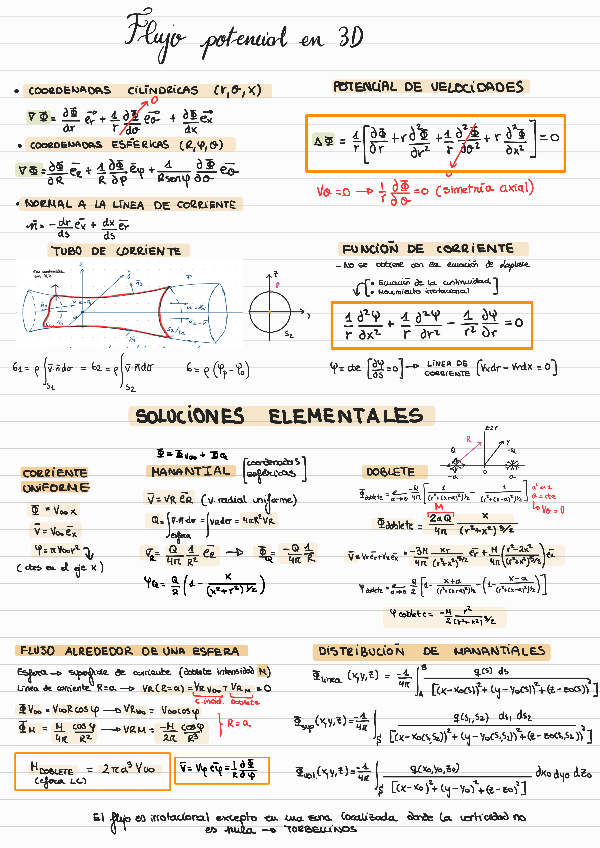 Flujo potencial en 3D
• COORDENADAS CILÍNDRICAS (r,θ,x)
∇Φ = ∂Φ/∂r e̅r + 1/r ∂Φ/∂θ e̅θ + ∂Φ/∂x e̅x
0
• COORDENADAS ESFÉRICAS (R,φ,θ)
∇Φ = ∂Φ/∂R e̅R + 1/R ∂Φ/∂φ e̅φ + 1/(R senφ) ∂Φ/∂θ e̅θ
• NORMAL A LA LÍNEA DE CORRIENTE
n̅ = -dr/ds e̅x + dx/ds e̅r
POTENCIAL DE VELOCIDADES
ΔΦ = 1/r [∂Φ/∂r + r ∂²Φ/∂r² + 1/r ∂²Φ/∂θ² + r ∂²Φ/∂x²] = 0
Vθ = 0 → 1/r ∂Φ/∂θ = 0 (simetría axial)
TUBO DE CORRIENTE
S2
G1 = ρ∫S1 v̅·n̅dσ = G2 = ρ∫S2 v̅·n̅dσ G = ρ(φp - φ0)
FUNCIÓN DE CORRIENTE
- No se obtiene con la ecuación de Laplace
[• Ecuación de la continuidad
• Movimiento irrotacional]
1/r ∂²φ/∂x² + 1/r ∂²φ/∂r² - 1/r² ∂φ/∂r = 0
φ = cte [∂φ/∂s = 0] → LÍNEA DE CORRIENTE [Vxdr - Vrdx = 0]
SOLUCIONES ELEMENTALES
CORRIENTE
UNIFORME
Φ = V∞ x
V̅ = V∞ e̅x
φ = π V∞ r²
(ctes en el eje x)
Φ = ΦV∞ + ΦQ
MANANTIAL [coordenadas esféricas]
V̅ = VR e̅R (v. radial uniforme)
Q = ∫esfera V̅·n̅ dσ = ∫VR dσ = 4πR²VR
V̅R = Q/4π 1/R² e̅R → ΦQ = -Q/4π 1/R
φQ = Q/2 (1 - x/(x²+r²)^1/2)
DOBLETE
Q -Q
-a 0 a
M
Φdoblete = 2aQ/4π x/(r²+x²)^3/2
a² << 1
Vθ = 0
V̅ = Vr e̅r + Vx e̅x = -3M/4π xr/(r²+x²)^5/2 e̅r + M/4π (r²-2x²)/(r²+x²)^5/2 e̅x
φdoblete = -M/2 r²/(r²+x²)^3/2
FLUJO ALREDEDOR DE UNA ESFERA
Esfera → superficie de corriente (doblete intensidad M)
Línea de corriente R=a → VR(R=a) = VR V∞ + VR M = 0
c. incid. doblete
ΦV∞ = V∞R cosφ → VR V∞ = V∞ cosφ
ΦM = M/4π cosφ/R² → VRM = -M/2π cosφ/R³
R=a
MDOBLETE = 2πa³V∞
(esfera LC)
V̅ = Vφ e̅φ = 1/R ∂Φ/∂φ
DISTRIBUCIÓN DE MANANTIALES
Φlínea (x,y,z) = -1/4π ∫ q(s) ds / [(x-x0(s))² + (y-y0(s))² + (z-z0(s))²]
Φsup (x,y,z) = -1/4π ∫ q(s1,s2) ds1 ds2 / [(x-x0(s1,s2))² + (y-y0(s1,s2))² + (z-z0(s1,s2))²]
Φvol (x,y,z) = -1/4π ∫ q(x0,y0,z0) / [(x-x0)² + (y-y0)² + (z-z0)²] dx0 dy0 dz0
El flujo es irrotacional excepto en una zona localizada donde la vorticidad no
es nula → TORBELLINOS